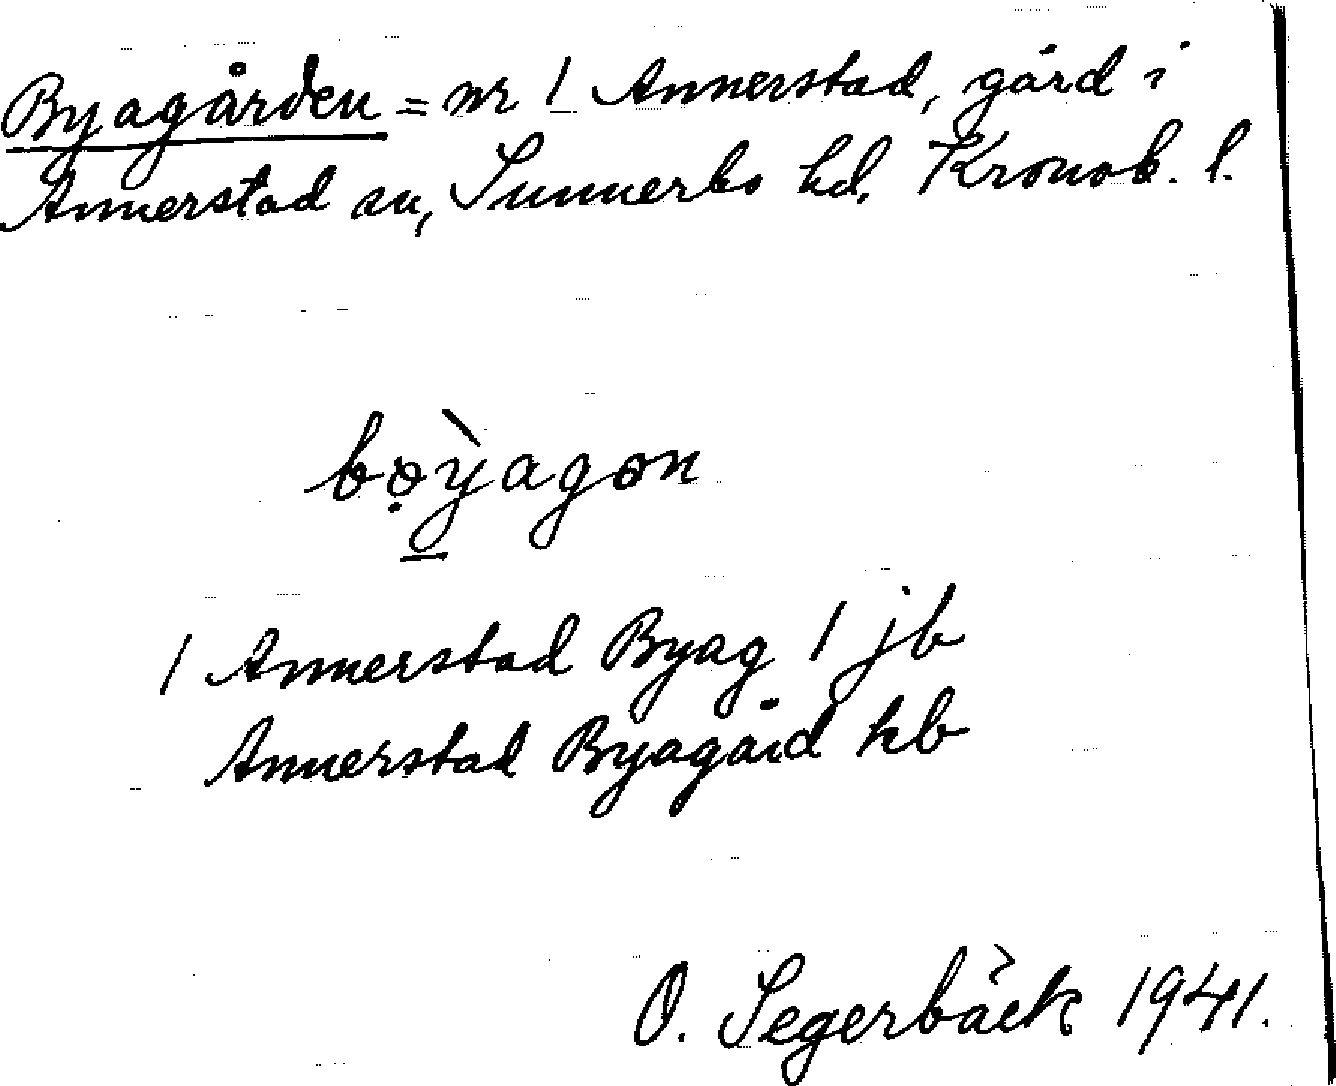 Byagården = nr 1 Annerstad, gård i
Annerstad sn, Sunnerbo hd, Kronob. l.
bø̣̀yagøn
1 Annerstad Byag 1 jb
Annerstad Byagård hb
O. Segerbäck 1941.